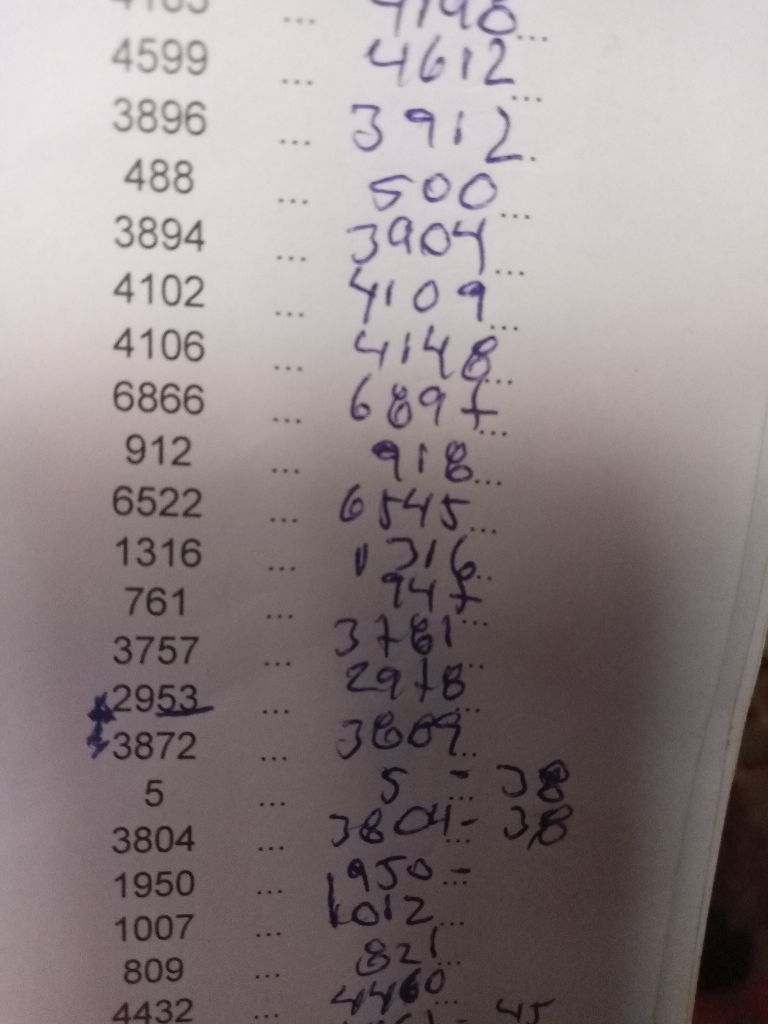 4183 ... 4198 ...
4599 ... 4612 ...
3896 ... 3912 ...
488 ... 500 ...
3894 ... 3904 ...
4102 ... 4109 ...
4106 ... 4148 ...
6866 ... 6897 ...
912 ... 918 ...
6522 ... 6545 ...
1316 ... 1316 ...
761 ... 947 ...
3757 ... 3781 ...
2953 ... 2978 ...
3872 ... 3889 ...
5 ... 5 ... - 38
3804 ... 3804 ... - 38
1950 ... 1950 ... -
1007 ... 1012 ...
809 ... 821 ...
4432 ... 4460 ...
- 45